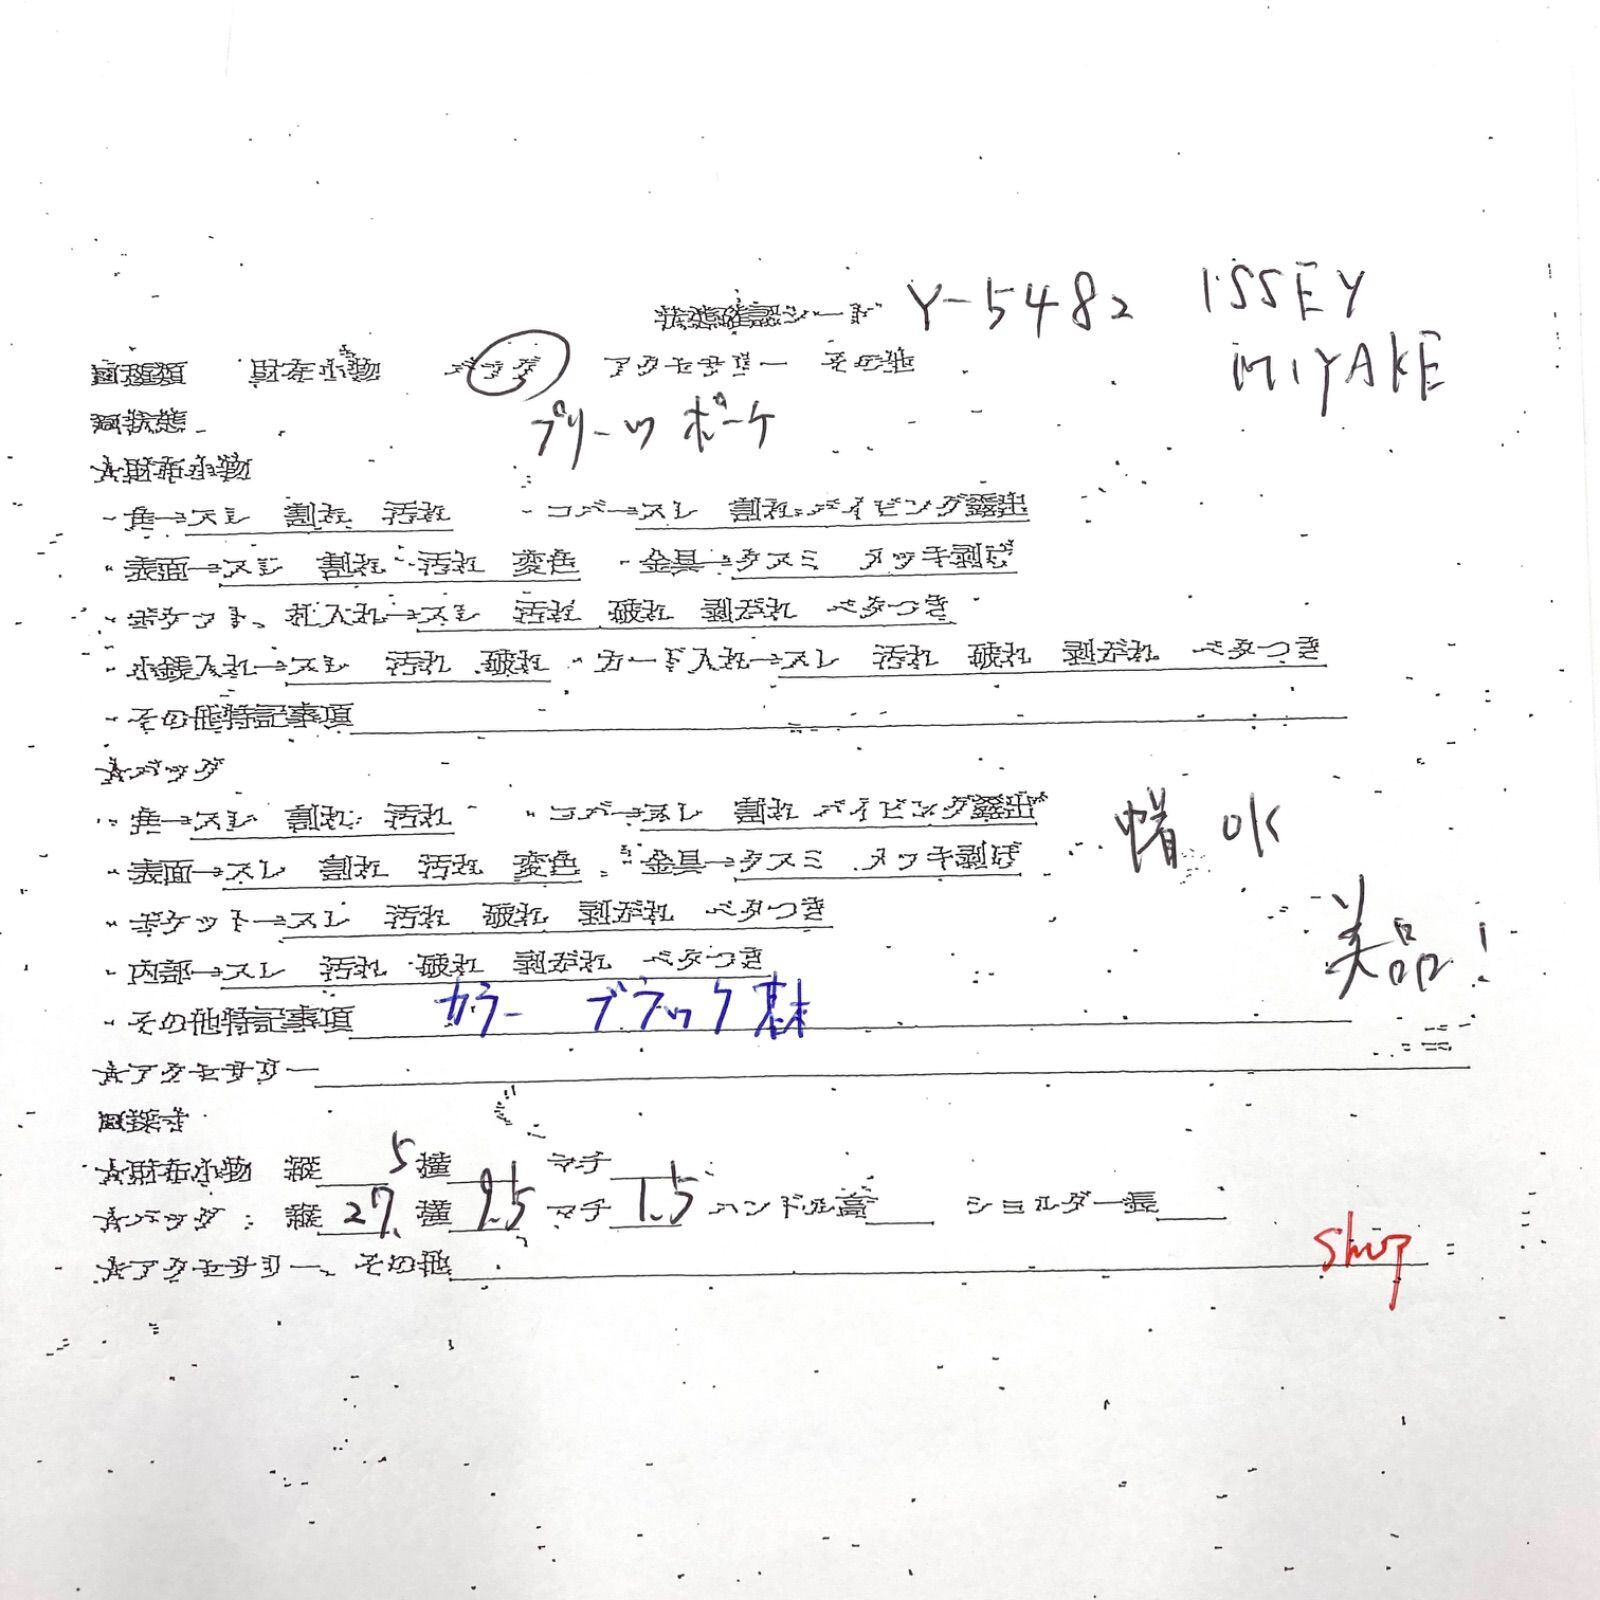 状態確認シート Y-5482 ISSEY
MIYAKE
□種類 財布小物 バッグ アクセサリー その他
□状態
プリーツ ポーチ
☆財布小物
・角→スレ 割れ 汚れ ・コバ→スレ 割れ パイピング露出
・表面→スレ 割れ 汚れ 変色 ・金具→クスミ メッキ剥げ
・ポケット、札入れ→スレ 汚れ 破れ 剥がれ ベタつき
・小銭入れ→スレ 汚れ 破れ ・カード入れ→スレ 汚れ 破れ 剥がれ ベタつき
・その他特記事項
☆バッグ
・角→スレ 割れ 汚れ ・コバ→スレ 割れ パイピング露出
OK
・表面→スレ 割れ 汚れ 変色 ・金具→クスミ メッキ剥げ
・ポケット→スレ 汚れ 破れ 剥がれ ベタつき
美品!
・内部→スレ 汚れ 破れ 剥がれ ベタつき
・その他特記事項 カラー ブラック基本
☆アクセサリー
□採寸
☆財布小物 縦 5 横 マチ
☆バッグ: 縦 27 横 マチ 1.5 ハンドル高 ショルダー長
☆アクセサリー、その他 shop